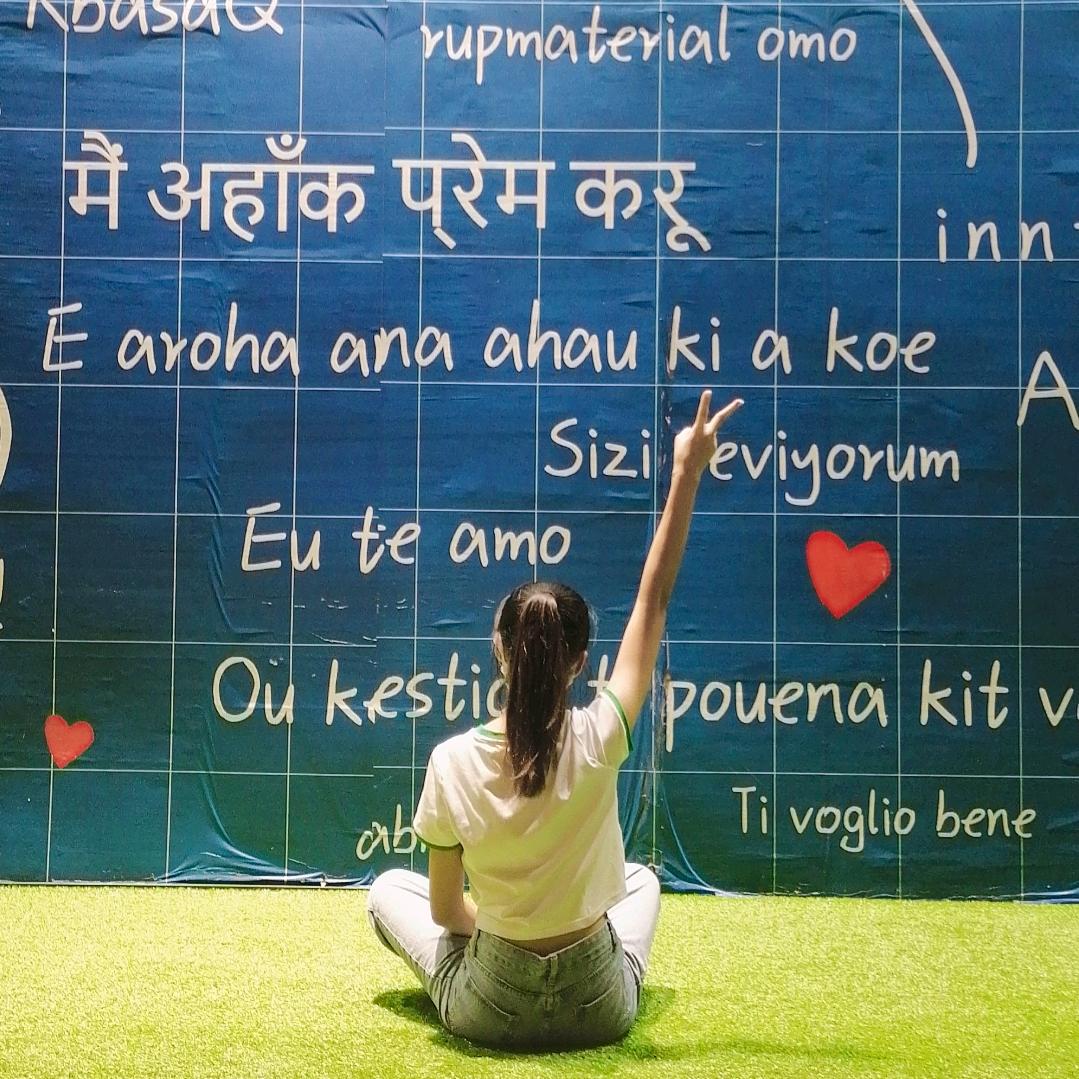 rupmaterial omo
मैं अहाँक प्रेम करू
inn
E aroha ana ahau ki a koe
A
Sizi eviyorum
Eu te amo
Ou kestio pouena kit v
ab
Ti voglio bene